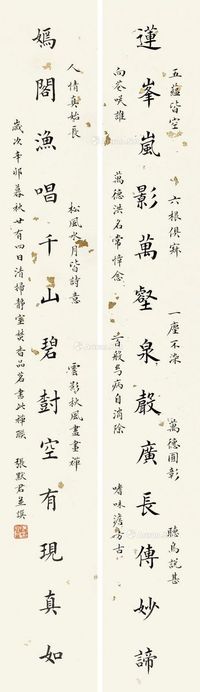 蓮峯嵐影萬壑泉聲廣長傳妙諦
五蘊皆空 六根俱寂 一塵不染 萬德圓彰 聽鳥說甚
萬德洪名常憶念
嫣閣漁唱千山碧對空有現真如
人情真始長 松風水月皆詩意 雲影秋風盡畫禪
歲次辛卯暮秋廿有四日清掃靜室焚香品茗書此禪聯 張默君並撰